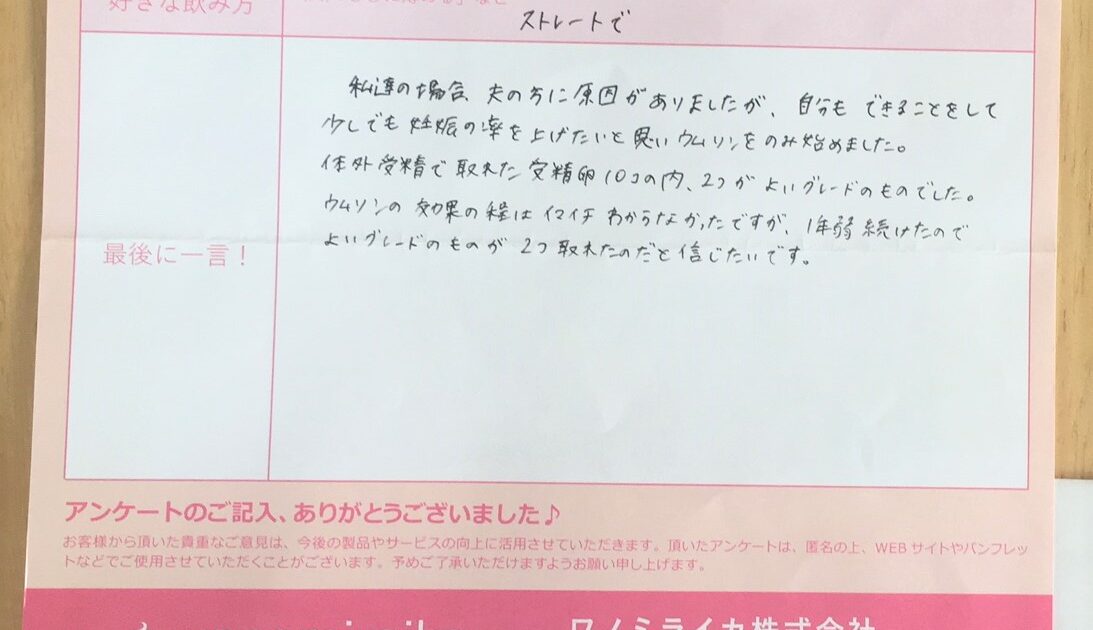 好きな飲み方
ストレートで
私達の場合、夫の方に原因がありましたが、自分もできることをして
少しでも妊娠の率を上げたいと思いウムリンをのみ始めました。
体外受精で取れた受精卵10コの内、2つがよいグレードのものでした。
ウムリンの効果の程はイマイチわからなかったですが、1年弱続けたので
よいグレードのものが2つ取れたのだと信じたいです。
最後に一言!
アンケートのご記入、ありがとうございました♪
お客様から頂いた貴重なご意見は、今後の製品やサービスの向上に活用させていただきます。頂いたアンケートは、匿名の上、WEBサイトやパンフレッ
トなどでご使用させていただくことがございます。予めご了承いただけますようお願い申し上げます。
ワノミライカ株式会社